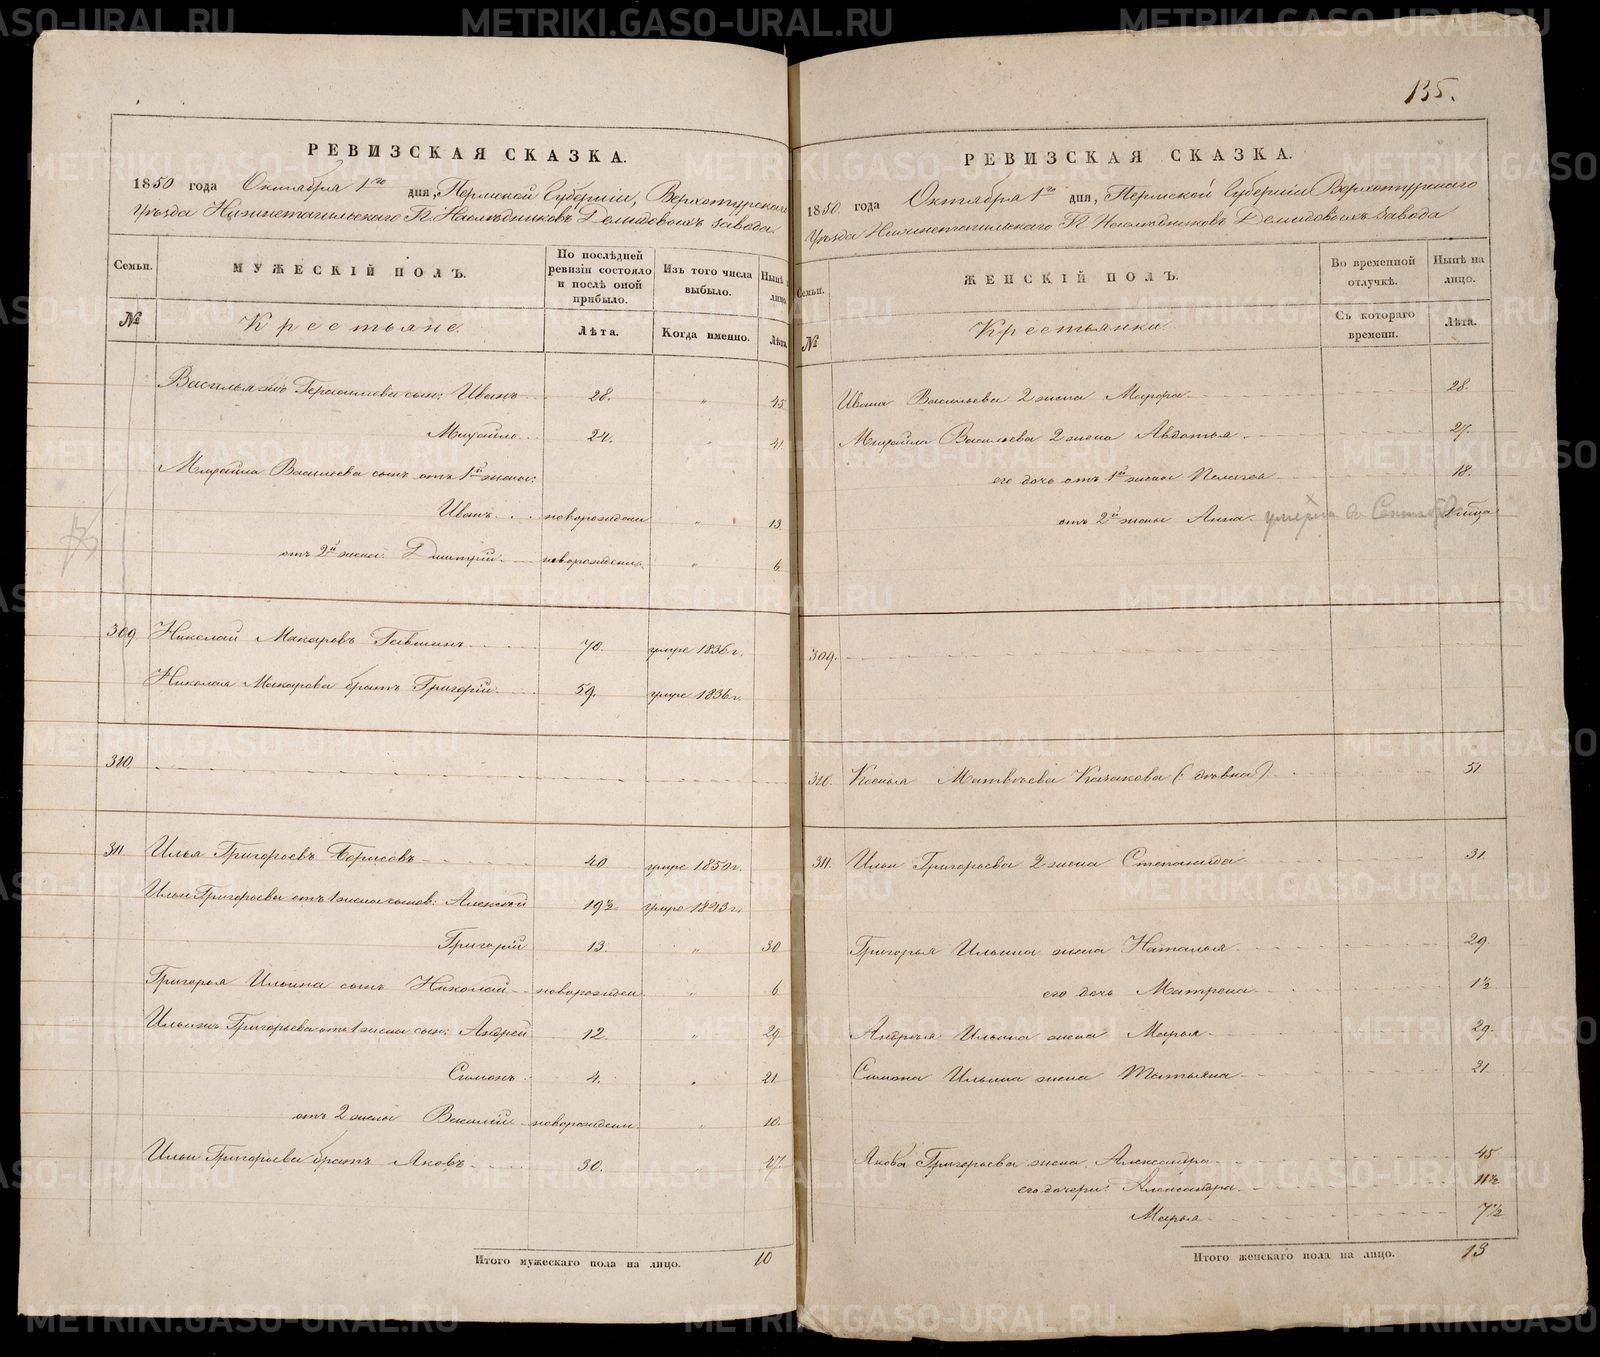 135.
РЕВИЗСКАЯ СКАЗКА.
1850 года Октября 1го дня, Пермской Губернии, Верхотурскаго
Уѣзда Нижнетагильскаго П. Наслѣдниковъ Демидовыхъ завода
Семьи. МУЖЕСКІЙ ПОЛЪ. По послѣдней ревизіи состояло и послѣ оной прибыло. Изъ того числа выбыло. Нынѣ на лицо.
№ Крестьяне. Лѣта. Когда именно. Лѣта.
Иванъ 28. " 45
Михайло 24. " 41
Михайла Васильева сынъ отъ 1й жены:
Иванъ новорожден " 13
отъ 2й жены: Дмитрій новорожденъ " 6
309 Николай Макаровъ 70. умре 1836г.
Николая Макарова братъ Григорій 59. умре 1836г.
310
311. Илья Григорьевъ Борисовъ 40 умре 1850г.
Ильи Григорьева отъ 1 жены сынов: Алексѣй 19½ умре 1843г.
Григорій 13. " 30
Григорья Ильина сынъ Николай новорожден " 6
Григорьева отъ 1 жены сын: Андрей 12. " 29
Симонъ 4. " 21
отъ 2 жены Василій новорожден " 10.
Ильи Григорьева братъ Яковъ 30. " 47.
Итого мужескаго пола на лицо. 10
РЕВИЗСКАЯ СКАЗКА.
1850 года Октября 1го дня, Пермской Губерніи Верхотурскаго
Уѣзда Нижнетагильскаго П. Наслѣдниковъ Демидовыхъ завода
Семьи. ЖЕНСКІЙ ПОЛЪ. Во временной отлучкѣ. Нынѣ на лицо.
№ Крестьянки Съ котораго времени. Лѣта.
Ивана Васильева 2 жена Марфа 28.
Михайла Васильева 2 жена Авдотья 27.
его дочь отъ 1й жены Пелагея 18.
отъ 2й жены Анна умерла въ Сентябрѣ
309.
310. Ксенья Матвѣева Казакова (: дѣвка) 51.
311. Ильи Григорьева 2 жена Степанида 31.
Григорья Ильина жена Наталья 29
его дочь Матрена 1½
Андрѣя Ильина жена Марья 29.
Симона Ильина жена Татьяна 21.
Якова Григорьева жена Александра 45
его дочери: Александра 11½
Марья 7½
Итого женскаго пола на лицо. 13
METRIKI.GASO-URAL.RU